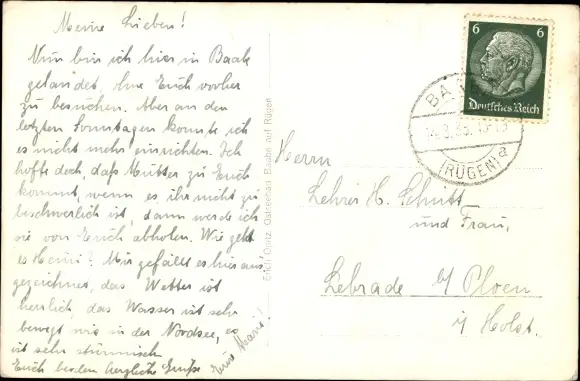 Meine Lieben!
Nun bin ich hier in Baabe
gelandet, ohne Euch vorher
zu besuchen. Aber an den
letzten Sonntagen konnte ich
es nicht mehr einrichten. Ich
hoffe doch, daß Mutter zu Euch
kommt, wenn es ihr nicht zu
beschwerlich ist, dann werde ich
sie von Euch abholen. Wie geht
es Heini? Mir gefällt es hier aus-
gezeichnet, das Wetter ist
herrlich, das Wasser ist sehr
bewegt wie in der Nordsee, es
ist sehr stürmisch
Euch beiden herzliche Grüße
Eure
Ostseebad Baabe auf Rügen
6 6
Deutsches Reich
BA
(RÜGEN) a
Herrn
Lehrer H. Schnitt
und Frau,
Lebrade b/ Ploen
i/ Holst.